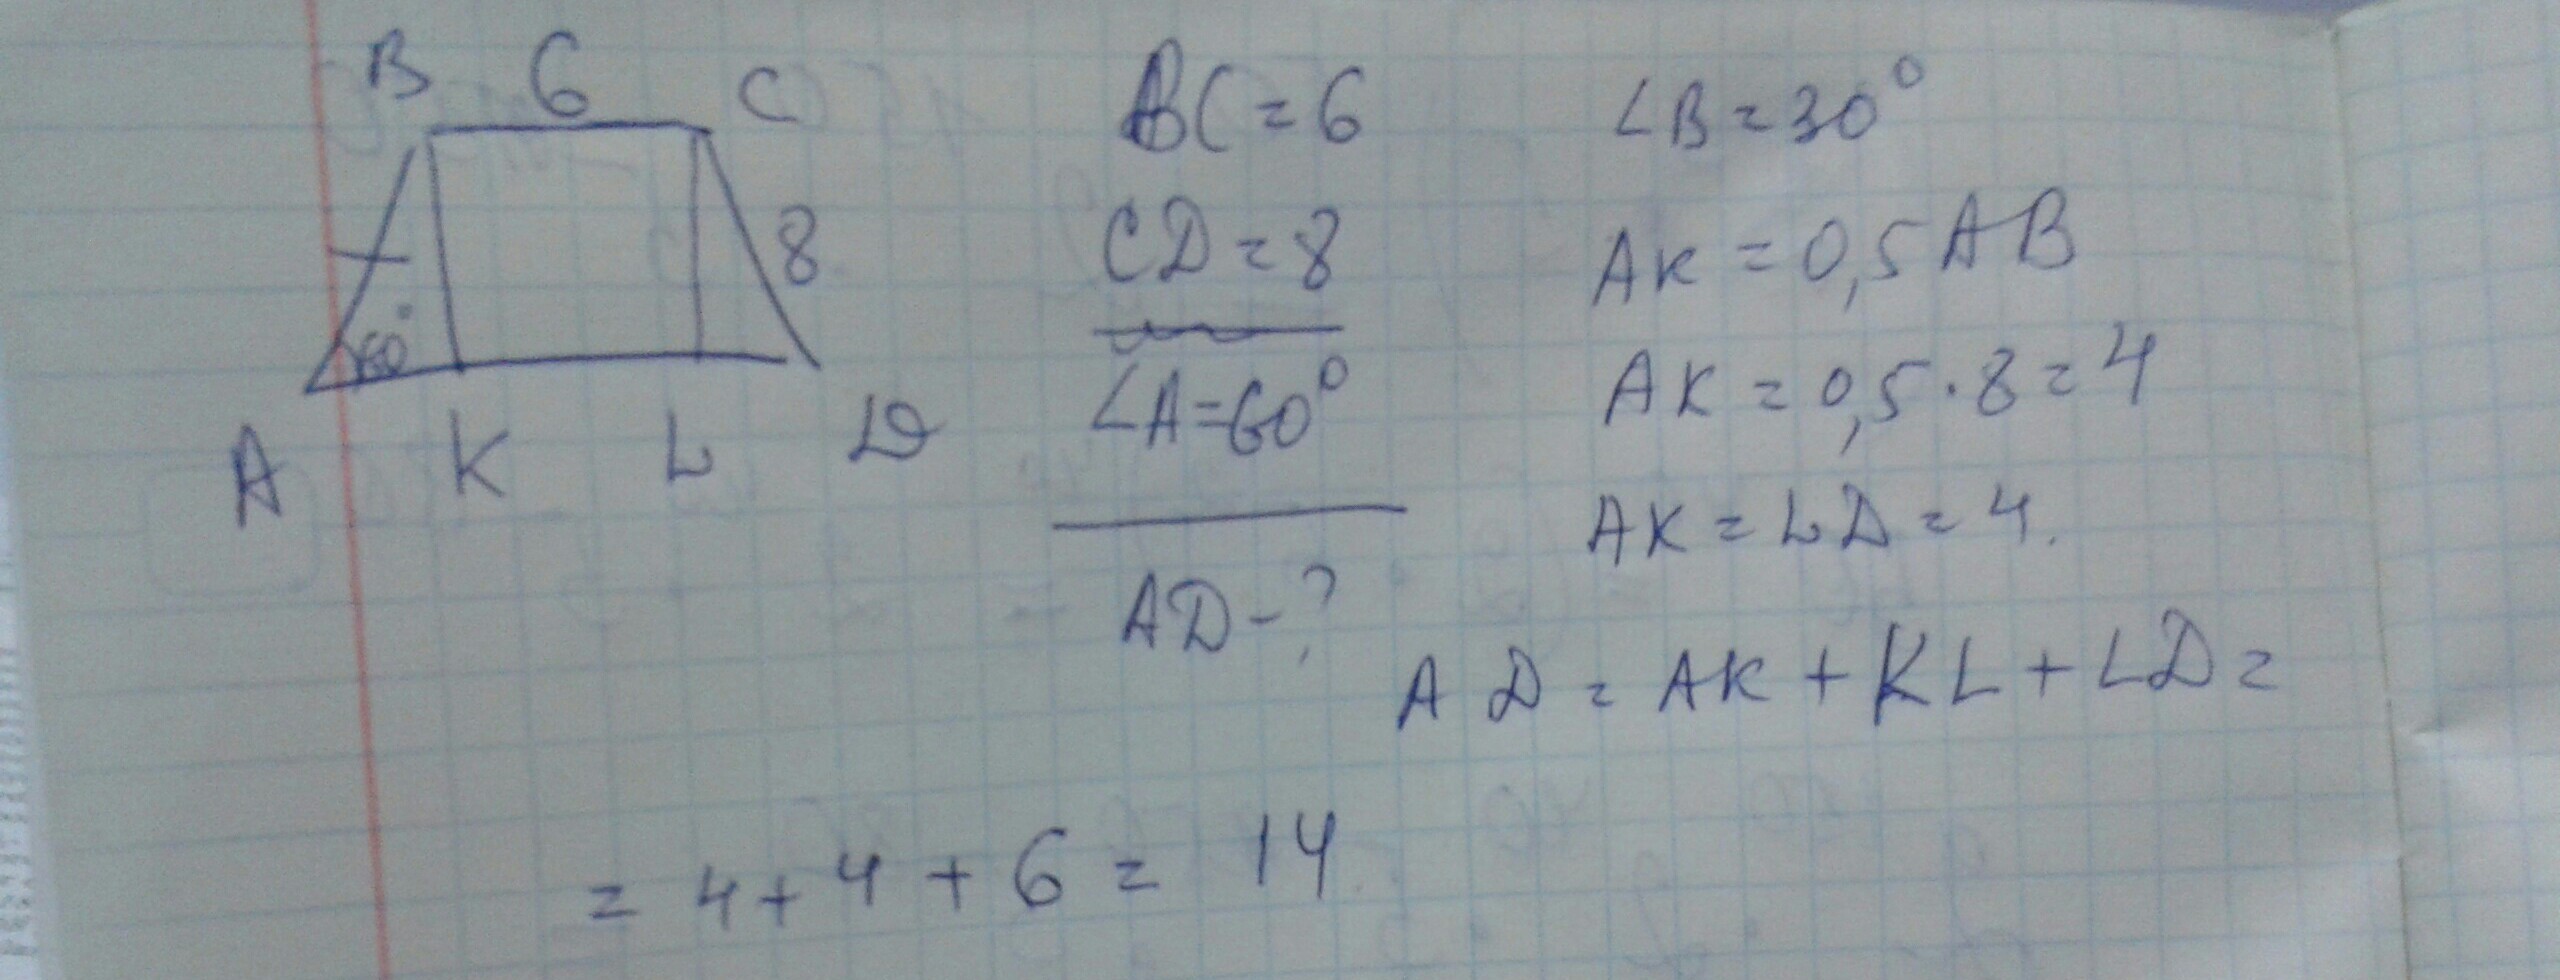 B 6 C
8
60°
A K L D
BC = 6
CD = 8
∠A = 60°
AD - ?
∠B = 30°
AK = 0,5 AB
AK = 0,5 · 8 = 4
AK = LD = 4.
AD = AK + KL + LD =
= 4 + 4 + 6 = 14